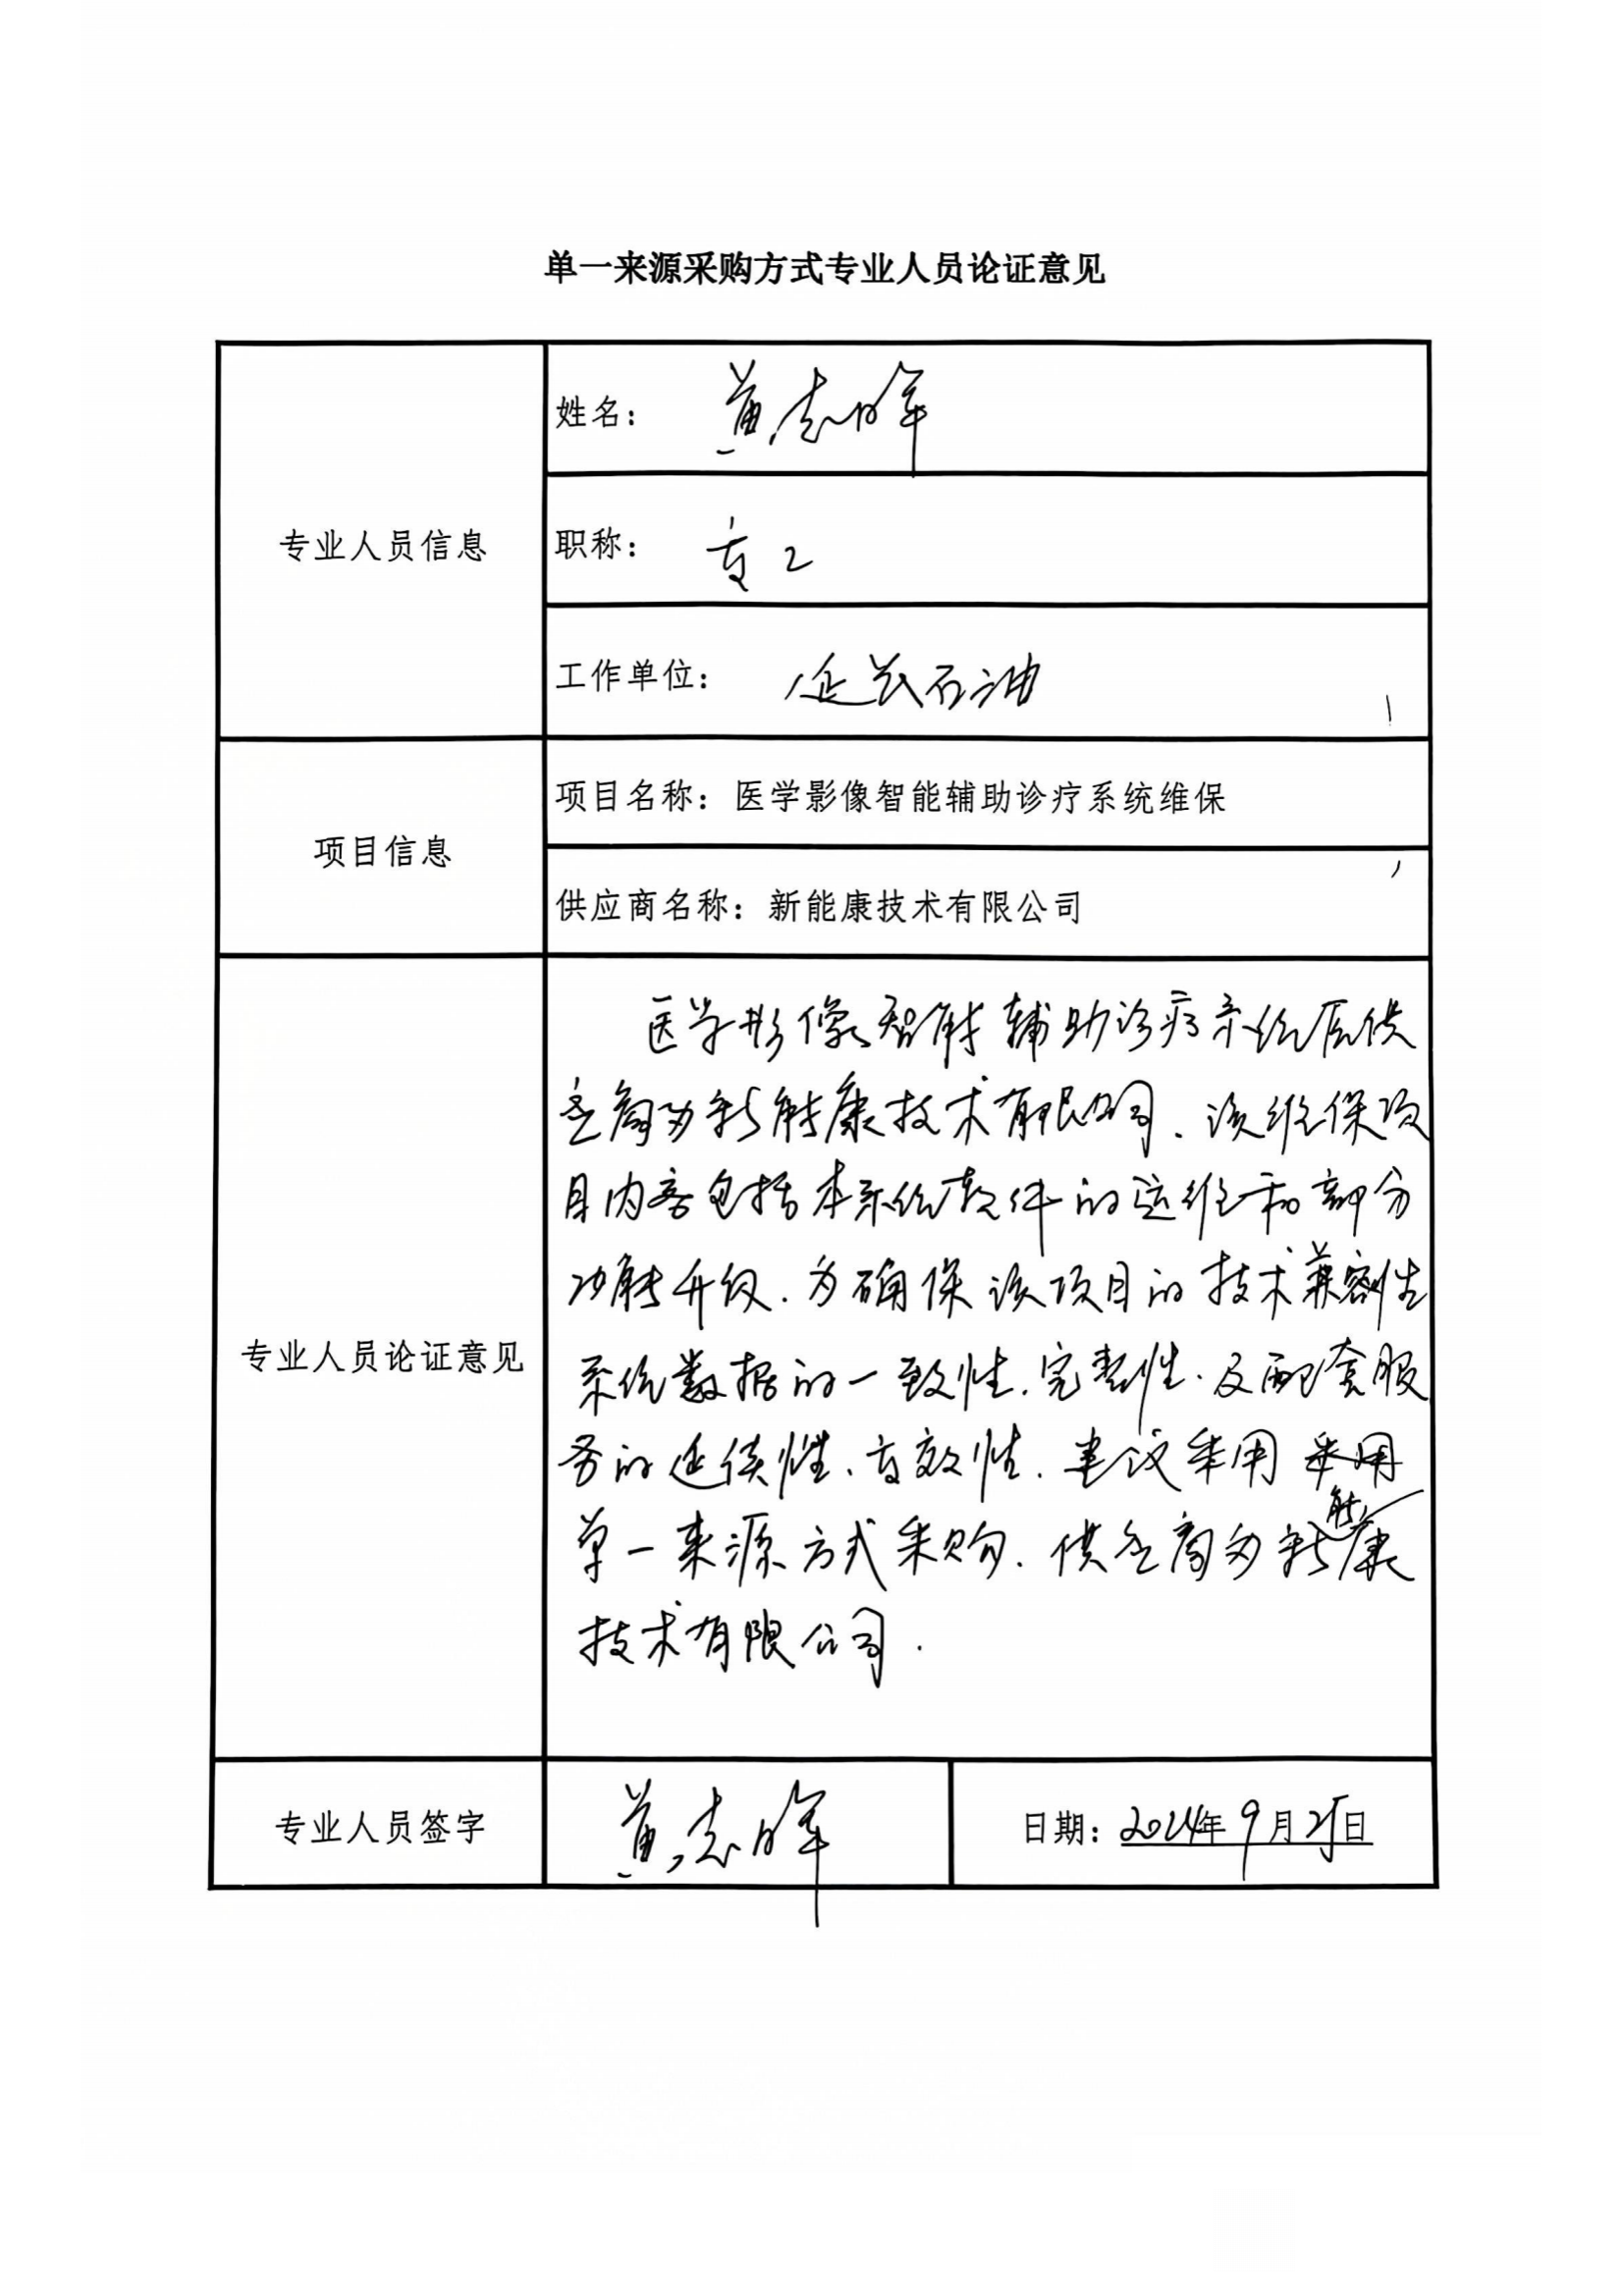 单一来源采购方式专业人员论证意见
专业人员信息
姓名：黄志晖
职称：高工
工作单位：延长石油
项目信息
项目名称：医学影像智能辅助诊疗系统维保
供应商名称：新能康技术有限公司
专业人员论证意见
医学影像智能辅助诊疗系统原供
应商为新能康技术有限公司、该维保项
目内容包括本系统软件的运维和部分
功能升级.为确保该项目的技术兼容性
系统数据的一致性.完整性.及配套服
务的延续性、高效性.建议采用
单一来源方式采购.供应商为新能康
技术有限公司.
专业人员签字
黄志晖
日期：2024年9月25日